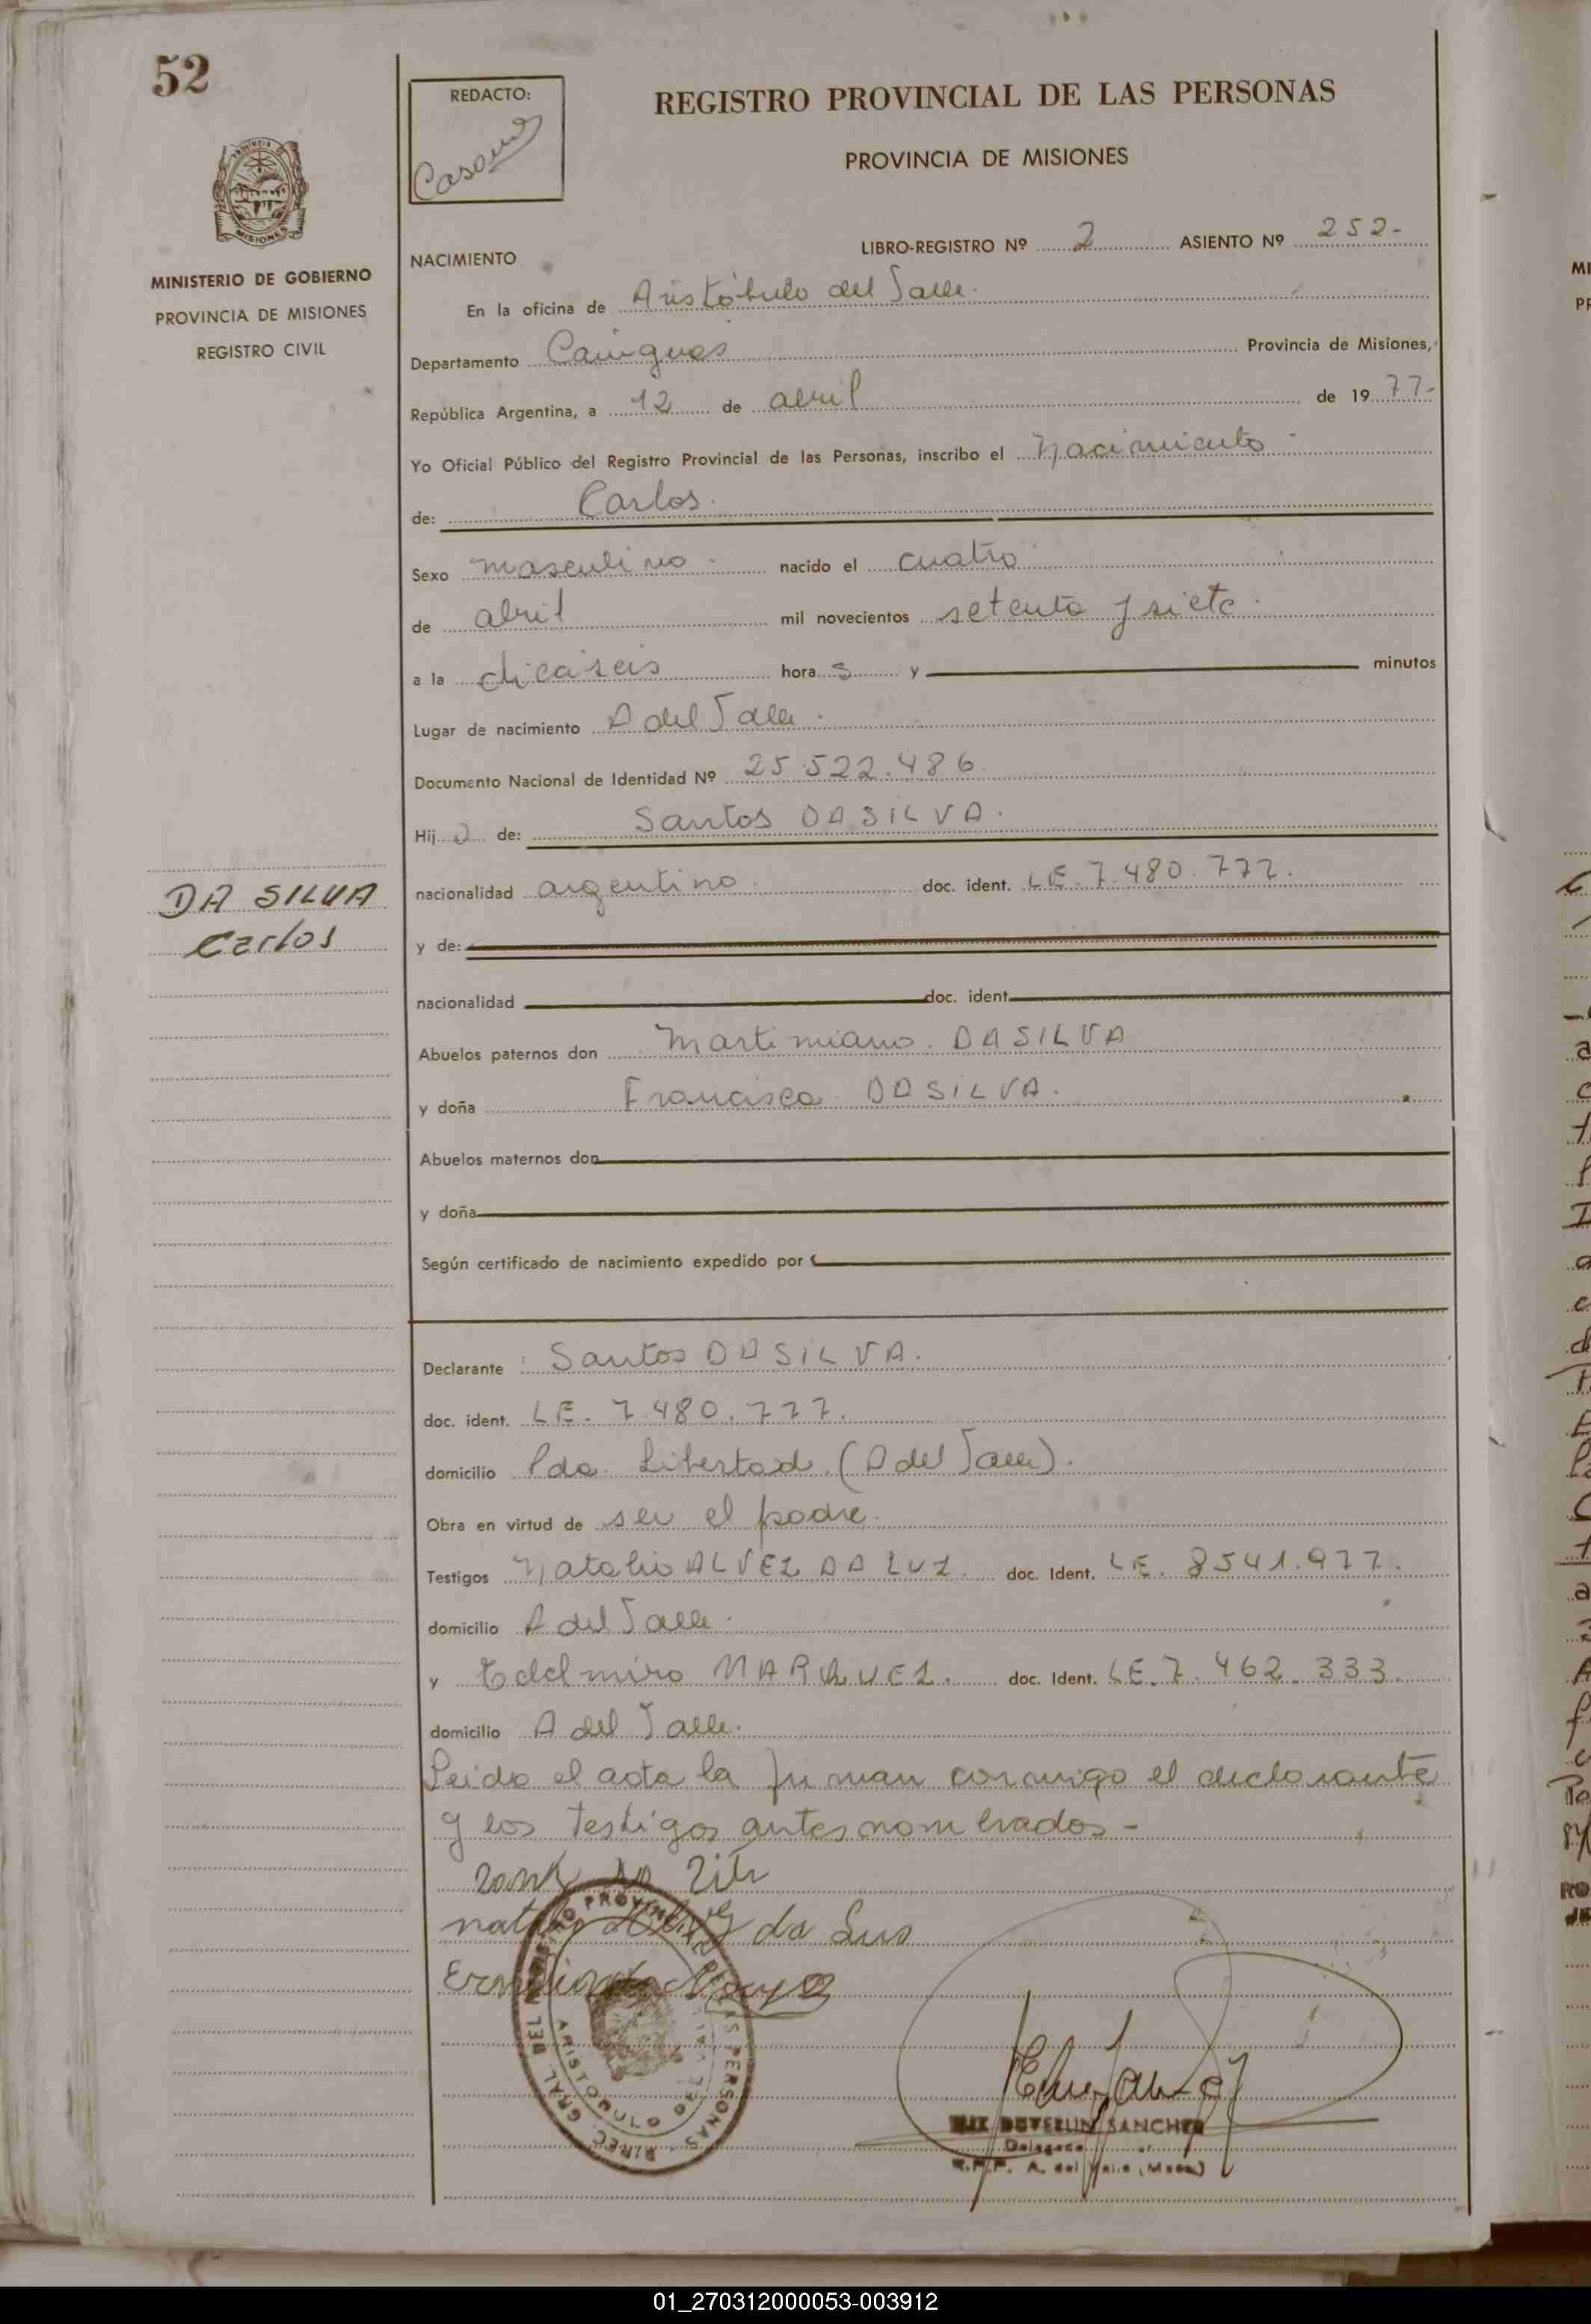 52
REDACTO:
REGISTRO PROVINCIAL DE LAS PERSONAS
PROVINCIA DE MISIONES
MISIONES
MINISTERIO DE GOBIERNO
PROVINCIA DE MISIONES
REGISTRO CIVIL
NACIMIENTO
LIBRO-REGISTRO Nº 2 ASIENTO Nº 252-
En la oficina de Aristóbulo del Valle.
Departamento Cainguás Provincia de Misiones,
República Argentina, a 12 de abril de 19 77-
Yo Oficial Público del Registro Provincial de las Personas, inscribo el Nacimiento -
de: Carlos.
Sexo masculino. nacido el cuatro
de abril mil novecientos setenta y siete.
a la dieciseis hora s y minutos
Lugar de nacimiento A del Valle.
Documento Nacional de Identidad Nº 25.522.486.
Hij o de: Santos DA SILVA.
nacionalidad argentino. doc. ident. LE. 7.480.777.
DA SILVA
Carlos
y de:
nacionalidad doc. ident.
Abuelos paternos don Martimiano. DA SILVA
y doña Francisca DA SILVA.
Abuelos maternos don
y doña
Según certificado de nacimiento expedido por
Declarante Santos DA SILVA.
doc. ident. LE. 7.480.777.
domicilio Pda. Libertad. (A del Valle).
Obra en virtud de ser el padre.
Testigos Natalio ALVEZ DA LUZ. doc. Ident. LE. 8541.977.
domicilio A del Valle.
y Edelmiro MARQUEZ. doc. Ident. LE. 7.462.333.
domicilio A del Valle.
Leida el acta la firman conmigo el declarante
y los testigos antes nombrados -
da Lus
SANCHEZ
Delegado
R.P.P. A. del Valle (Mnes)
01_270312000053-003912